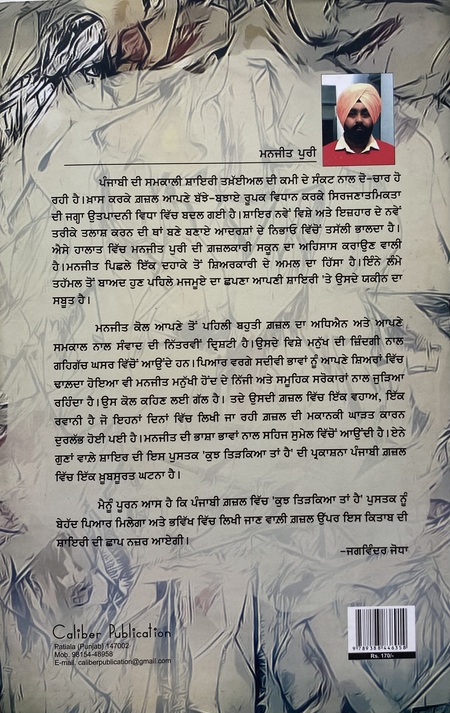 ਮਨਜੀਤ ਪੁਰੀ
ਪੰਜਾਬੀ ਦੀ ਸਮਕਾਲੀ ਸ਼ਾਇਰੀ ਤਖ਼ੱਈਅਲ ਦੀ ਕਮੀ ਦੇ ਸੰਕਟ ਨਾਲ ਦੋ-ਚਾਰ ਹੋ
ਰਹੀ ਹੈ।ਖ਼ਾਸ ਕਰਕੇ ਗਜ਼ਲ ਆਪਣੇ ਬੱਝੇ-ਬਝਾਏ ਰੂਪਕ ਵਿਧਾਨ ਕਰਕੇ ਸਿਰਜਣਾਤਮਿਕਤਾ
ਦੀ ਜਗ੍ਹਾ ਉਤਪਾਦਨੀ ਵਿਧਾ ਵਿੱਚ ਬਦਲ ਗਈ ਹੈ।ਸ਼ਾਇਰ ਨਵੇਂ ਵਿਸ਼ੇ ਅਤੇ ਇਜ਼ਹਾਰ ਦੇ ਨਵੇਂ
ਤਰੀਕੇ ਤਲਾਸ਼ ਕਰਨ ਦੀ ਥਾਂ ਬਣੇ ਬਣਾਏ ਆਦਰਸ਼ਾਂ ਦੇ ਨਿਭਾਓ ਵਿੱਚੋਂ ਤਸੱਲੀ ਭਾਲਦਾ ਹੈ।
ਐਸੇ ਹਾਲਾਤ ਵਿੱਚ ਮਨਜੀਤ ਪੁਰੀ ਦੀ ਗ਼ਜ਼ਲਕਾਰੀ ਸਕੂਨ ਦਾ ਅਹਿਸਾਸ ਕਰਾਉਣ ਵਾਲੀ
ਹੈ।ਮਨਜੀਤ ਪਿਛਲੇ ਇੱਕ ਦਹਾਕੇ ਤੋਂ ਸ਼ਿਅਰਕਾਰੀ ਦੇ ਅਮਲ ਦਾ ਹਿੱਸਾ ਹੈ।ਇੰਨੇ ਲੰਮੇ
ਤਹੱਮਲ ਤੋਂ ਬਾਅਦ ਹੁਣ ਪਹਿਲੇ ਮਜਮੂਏ ਦਾ ਛਪਣਾ ਆਪਣੀ ਸ਼ਾਇਰੀ 'ਤੇ ਉਸਦੇ ਯਕੀਨ ਦਾ
ਸਬੂਤ ਹੈ।
ਮਨਜੀਤ ਕੋਲ ਆਪਣੇ ਤੋਂ ਪਹਿਲੀ ਬਹੁਤੀ ਗ਼ਜ਼ਲ ਦਾ ਅਧਿਐਨ ਅਤੇ ਆਪਣੇ
ਸਮਕਾਲ ਨਾਲ ਸੰਵਾਦ ਦੀ ਨਿੱਤਰਵੀਂ ਦ੍ਰਿਸ਼ਟੀ ਹੈ।ਉਸਦੇ ਵਿਸ਼ੇ ਮਨੁੱਖ ਦੀ ਜ਼ਿੰਦਗੀ ਨਾਲ
ਗਹਿਗੱਚ ਘਸਰ ਵਿੱਚੋਂ ਆਉਂਦੇ ਹਨ।ਪਿਆਰ ਵਰਗੇ ਸਦੀਵੀ ਭਾਵਾਂ ਨੂੰ ਆਪਣੇ ਸ਼ਿਅਰਾਂ ਵਿੱਚ
ਢਾਲ਼ਦਾ ਹੋਇਆ ਵੀ ਮਨਜੀਤ ਮਨੁੱਖੀ ਹੋਂਦ ਦੇ ਨਿੱਜੀ ਅਤੇ ਸਮੂਹਿਕ ਸਰੋਕਾਰਾਂ ਨਾਲ ਜੁੜਿਆ
ਰਹਿੰਦਾ ਹੈ। ਉਸ ਕੋਲ ਕਹਿਣ ਲਈ ਗੱਲ ਹੈ। ਤਦੇ ਉਸਦੀ ਗ਼ਜ਼ਲ ਵਿੱਚ ਇੱਕ ਵਹਾਅ, ਇੱਕ
ਰਵਾਨੀ ਹੈ ਜੋ ਇਹਨਾਂ ਦਿਨਾਂ ਵਿੱਚ ਲਿਖੀ ਜਾ ਰਹੀ ਗ਼ਜ਼ਲ ਦੀ ਮਕਾਨਕੀ ਘਾੜਤ ਕਾਰਨ
ਦੁਰਲੱਭ ਹੋਈ ਪਈ ਹੈ।ਮਨਜੀਤ ਦੀ ਭਾਸ਼ਾ ਭਾਵਾਂ ਨਾਲ ਸਹਿਜ ਸੁਮੇਲ ਵਿੱਚੋਂ ਆਉਂਦੀ ਹੈ।ਏਨੇ
ਗੁਣਾਂ ਵਾਲ਼ੇ ਸ਼ਾਇਰ ਦੀ ਇਸ ਪੁਸਤਕ 'ਕੁਝ ਤਿੜਕਿਆ ਤਾਂ ਹੈ' ਦੀ ਪ੍ਰਕਾਸ਼ਨਾ ਪੰਜਾਬੀ ਗ਼ਜ਼ਲ
ਵਿੱਚ ਇੱਕ ਖ਼ੂਬਸੂਰਤ ਘਟਨਾ ਹੈ।
ਮੈਨੂੰ ਪੂਰਨ ਆਸ ਹੈ ਕਿ ਪੰਜਾਬੀ ਗ਼ਜ਼ਲ ਵਿੱਚ 'ਕੁਝ ਤਿੜਕਿਆ ਤਾਂ ਹੈ' ਪੁਸਤਕ ਨੂੰ
ਬੇਹੱਦ ਪਿਆਰ ਮਿਲੇਗਾ ਅਤੇ ਭਵਿੱਖ ਵਿੱਚ ਲਿਖੀ ਜਾਣ ਵਾਲ਼ੀ ਗ਼ਜ਼ਲ ਉੱਪਰ ਇਸ ਕਿਤਾਬ ਦੀ
ਸ਼ਾਇਰੀ ਦੀ ਛਾਪ ਨਜ਼ਰ ਆਏਗੀ।
-ਜਗਵਿੰਦਰ ਜੋਧਾ
Caliber Publication
Patiala (Punjab) 147002
Mob. 98154-48958
E-mail. caliberpublication@gmail.com
9 789388 446358
Rs. 170/-